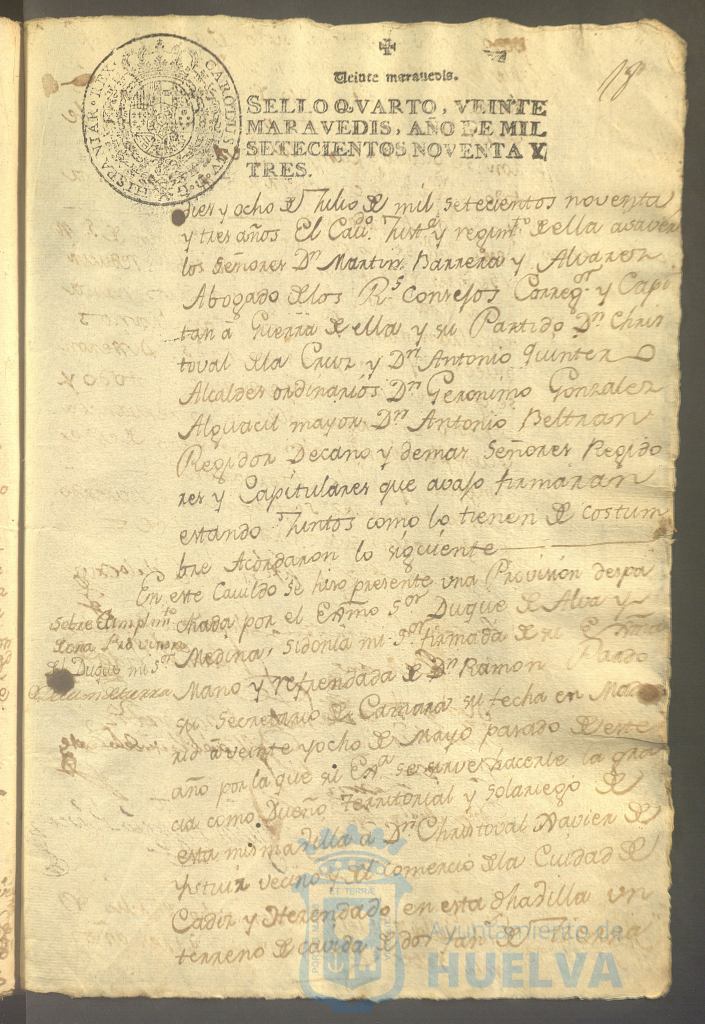 18
Veinte maravedis.
SELLO QVARTO, VEINTE
MARAVEDIS, AÑO DE MIL
SETECIENTOS NOVENTA Y
TRES.
HISPANIAR · REX · CAROLUS · IV · D · G ·
diez y ocho de Julio de mil setecientos noventa
y tres años El Cavdo. Justa y regimto de ella a saver
los Señores Dn Martin Barrera y Alvarez
Abogado de los Rs Consejos Corregor y Capi
tan a Guerra de ella y su Partido Dn Chris
toval de la Cruz y Dn Antonio Quintero
Alcaldes ordinarios Dn Geronimo Gonzalez
Alguacil mayor Dn Antonio Beltran
Regidor Decano y demas Señores Regido
res y Capitulares que avajo firmaran
estando juntos como lo tienen de costum
bre Acordaron lo siguiente
En este Cavildo se hizo presente una Provision despa
chada por el Exmo Sor Duque de Alva y
Medina Sidonia mi Sor firmada de su Exma
Mano y refrendada de Dn Ramon Pardo
su Secretario de Camara su fecha en Mad
rid a veinte y ocho de Mayo pasado de este
año por la que su Exa se sirve hacerle la gra
cia como Dueño Territorial y Solariego de
esta misma villa a Dn Christoval Xavier de
Ysturiz vecino y del comercio de la Ciudad de
Cadiz y Hazendado en esta dha villa un
terreno de cavida de dos fans de Tierra
Sobre Cumplimto
de una Provision
del Duque mi Sor
de la
Ayuntamiento de
HUELVA